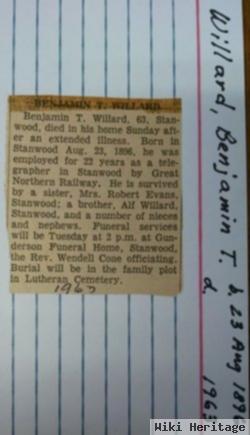 BENJAMIN T. WILLARD
Benjamin T. Willard, 63, Stan-
wood, died in his home Sunday aft-
er an extended illness. Born in
Stanwood Aug. 23, 1896, he was
employed for 22 years as a tele-
grapher in Stanwood by Great
Northern Railway. He is survived
by a sister, Mrs. Robert Evans,
Stanwood; a brother, Alf Willard,
Stanwood, and a number of nieces
and nephews. Funeral services
will be Tuesday at 2 p.m. at Gun-
derson Funeral Home, Stanwood,
the Rev. Wendell Cone officiating.
Burial will be in the family plot
in Lutheran Cemetery.
Willard, Benjamin T. b. 23 Aug 1896
d. 1963
Wiki Heritage